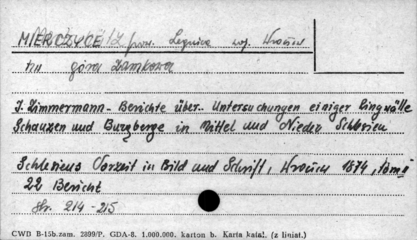 MIERCZYCE pow. Legnica woj. Wrocław
tzw góra Zamkowa
J. Zimmermann - Berichte über.. Untersuchungen einiger Ringwälle
Schanzen und Burgberge in Mittel und Nieder Schlesien
Schlesiens Vorzeit in Bild und Schrift, Wrocław 1874, tom II
22 Bericht
Str. 214-215
CWD B-15b.zam. 2899/P. GDA-8. 1.000.000. karton b. Karta katal. (z liniat.)